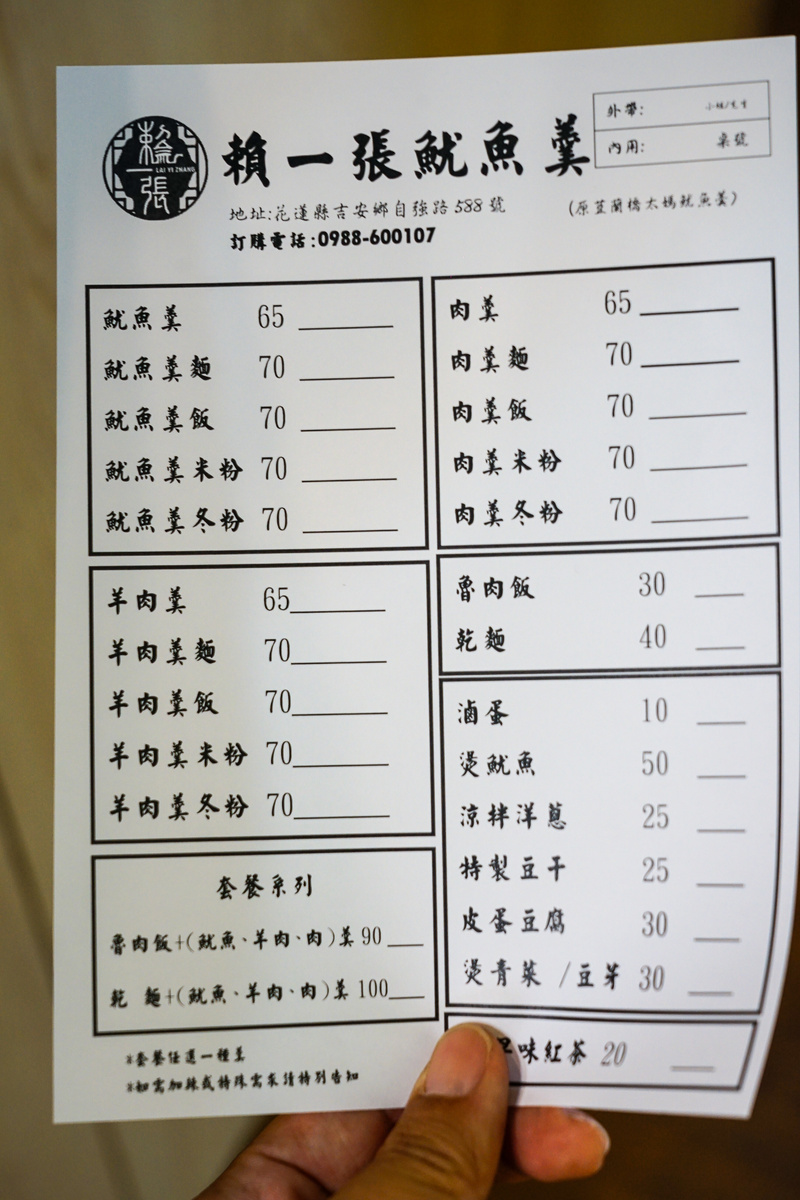 賴一張
LAI YI ZHANG
賴一張魷魚羹
外帶: 小姐/先生
內用: 桌號
地址:花蓮縣吉安鄉自強路588號
(原荳蘭橋太媽魷魚羹)
訂購電話:0988-600107
魷魚羹 65
魷魚羹麵 70
魷魚羹飯 70
魷魚羹米粉 70
魷魚羹冬粉 70
羊肉羹 65
羊肉羹麵 70
羊肉羹飯 70
羊肉羹米粉 70
羊肉羹冬粉 70
套餐系列
魯肉飯+(魷魚、羊肉、肉)羹 90
乾 麵+(魷魚、羊肉、肉)羹 100
*套餐任選一種羹
*如需加辣或特殊需求請特別告知
肉羹 65
肉羹麵 70
肉羹飯 70
肉羹米粉 70
肉羹冬粉 70
魯肉飯 30
乾麵 40
滷蛋 10
燙魷魚 50
涼拌洋蔥 25
特製豆干 25
皮蛋豆腐 30
燙青菜 /豆芽 30
味紅茶 20